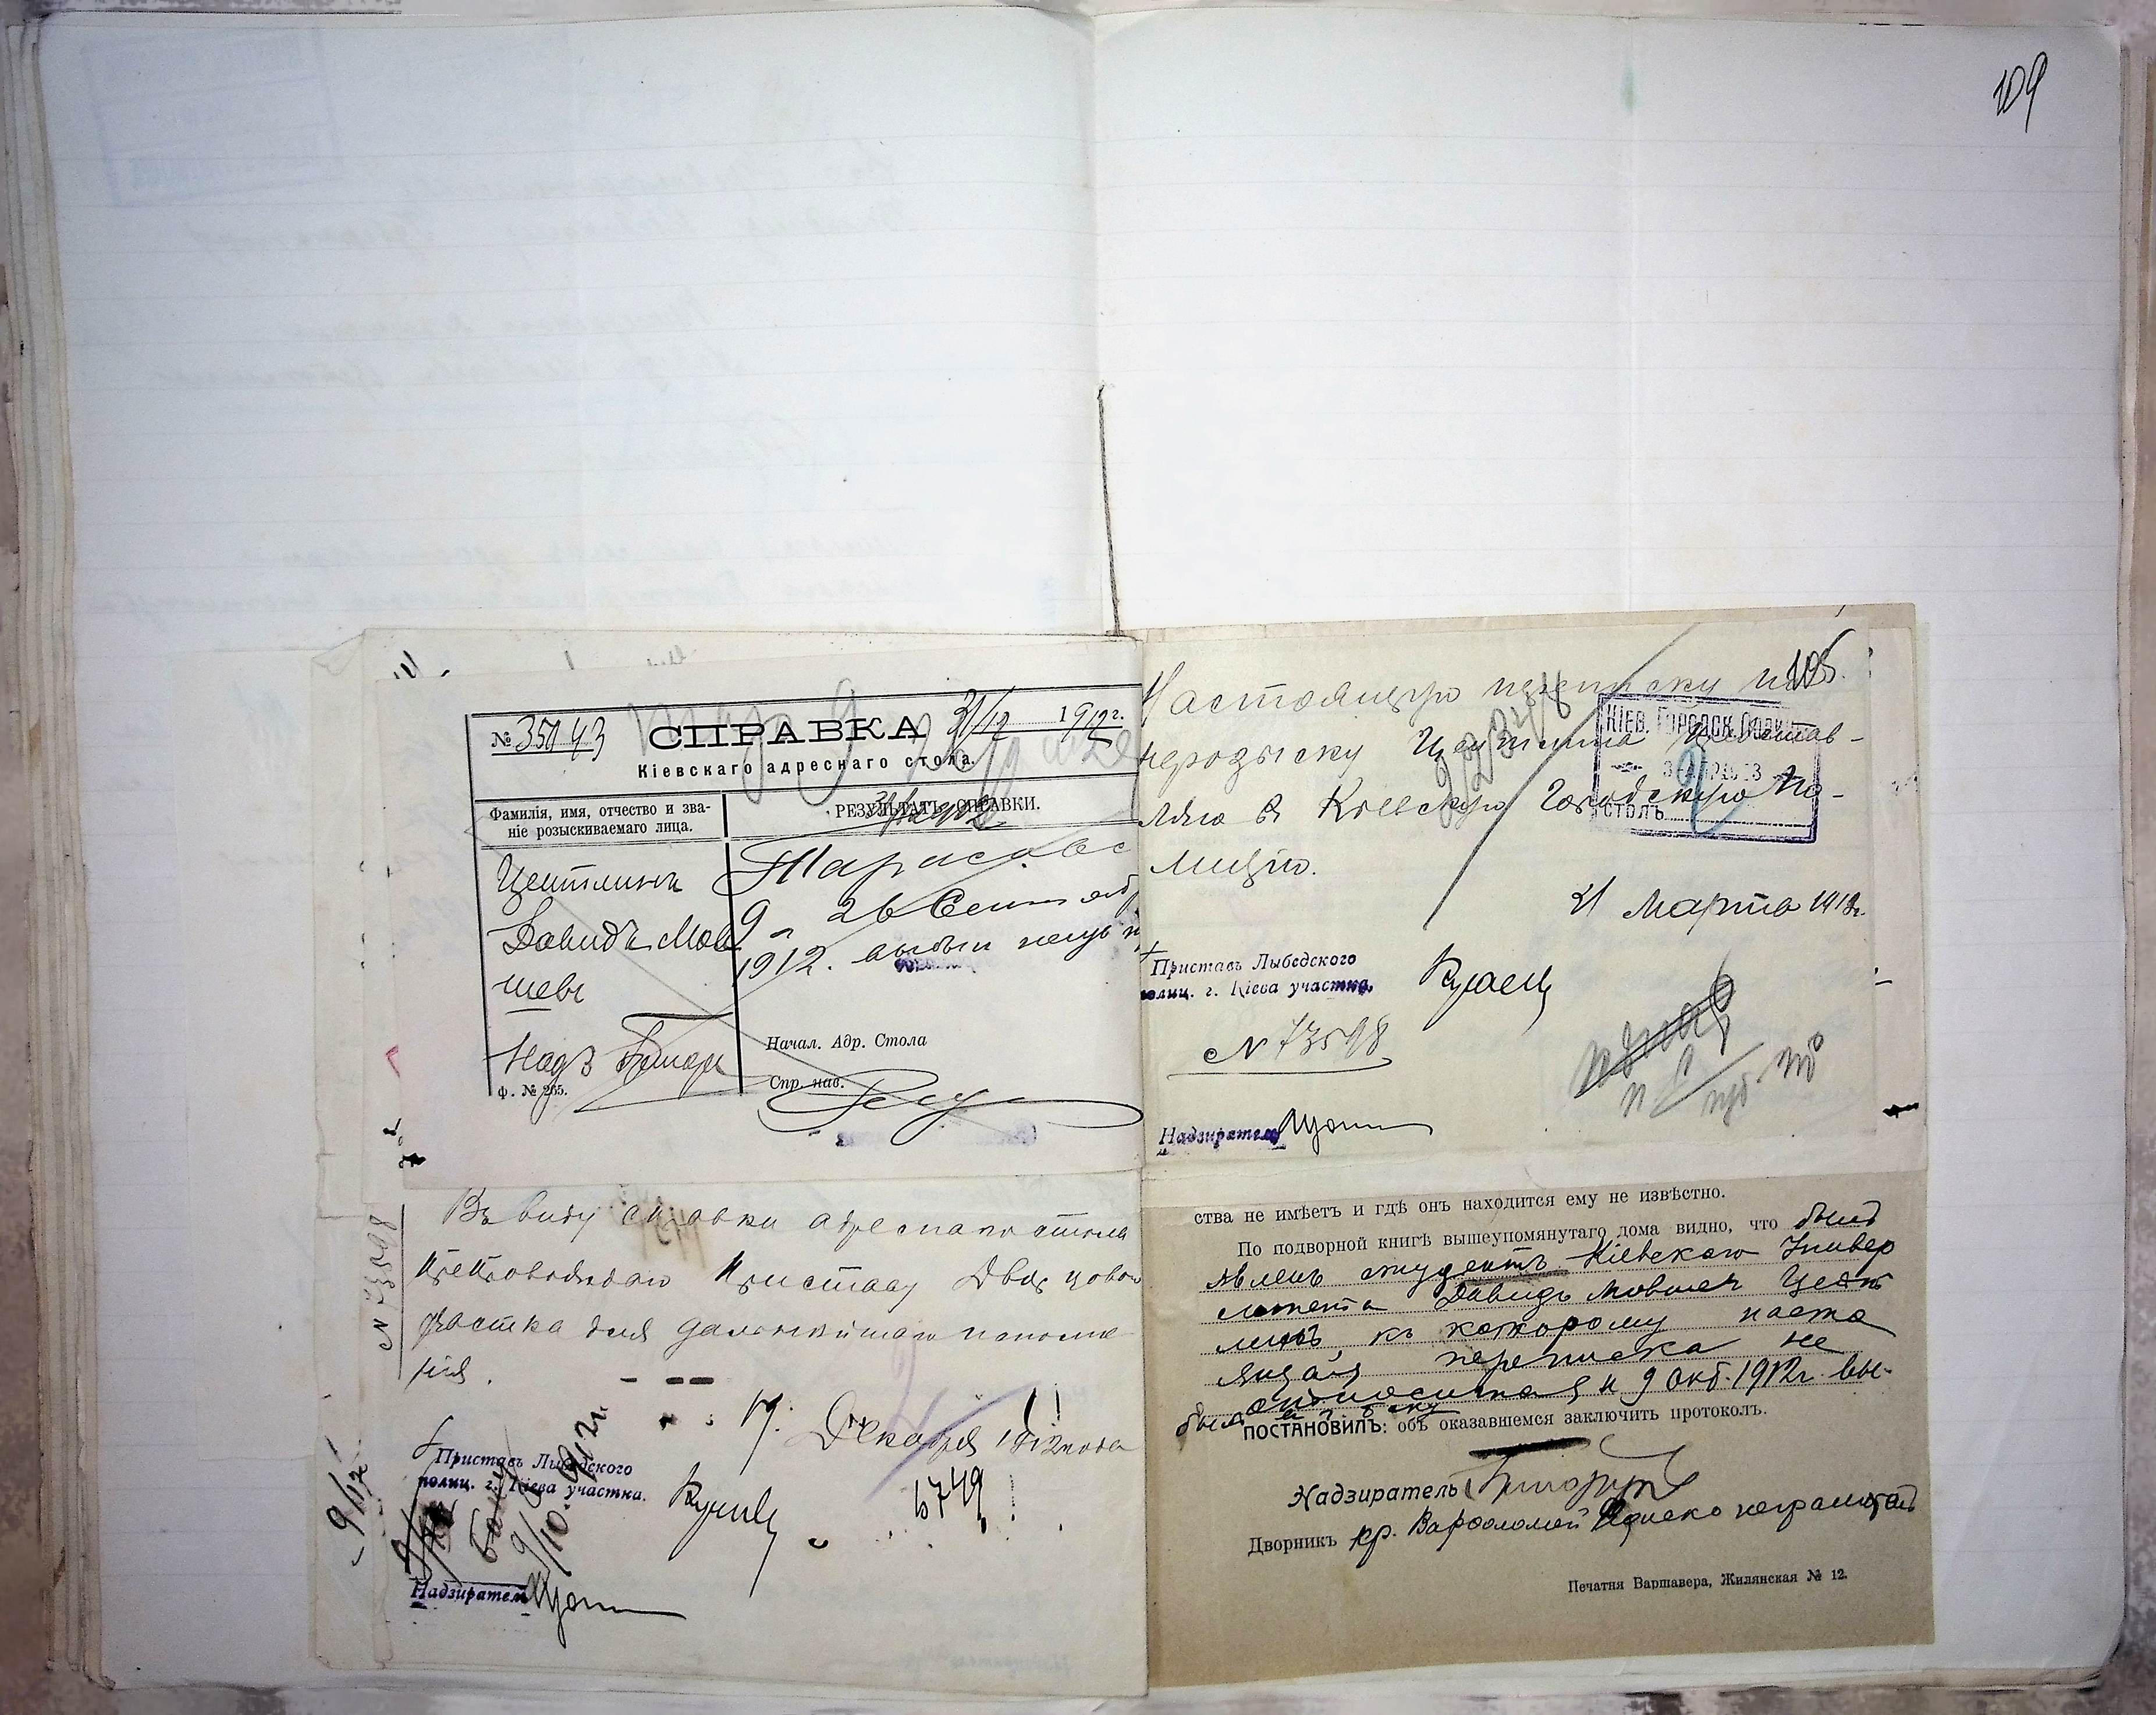 109
№ 35043 СПРАВКА 31/12 1912 г.
Кіевскаго адреснаго стола.
Фамилія, имя, отчество и зва-
ніе розыскиваемаго лица.
РЕЗУЛЬТАТЪ СПРАВКИ.
Цейтлинъ
Давидъ Мов
шевъ
Надз
Ф. № 265.
Тарасовс
9 - 26 Сентяб
1912. выбыл
Начал. Адр. Стола
Спр. нав.
105.
Настоящую переписку по
нерозыску Цейтлина представ-
ляю в Кіевскую Городскую По-
лицію.
КІЕВ. ГОРОДСК.
СТОЛЪ
21 Марта 1913г.
Приставъ Лыбедского
полиц. г. Кіева участка,
№ 73598
Надзиратель
№ 73598
Въ виду справки адреснаго стола
препровождаю Приставу Дворцоваго
участка для дальнѣйшаго исполне
нія.
19. Декабря 1912 года
Приставъ Лыбедского
полиц. г. Кіева участка.
6749
9/10 912г.
Надзиратель
ства не имѣетъ и гдѣ онъ находится ему не извѣстно.
По подворной книгѣ вышеупомянутаго дома видно, что былъ
явленъ студентъ Кіевскаго Универ
ситета Давидъ Мовшев Цейт
линъ, къ которому насто
ящая переписка не
относится, и 9 окт. 1912г. вы-
былъ
ПОСТАНОВИЛЪ: объ оказавшемся заключить протоколъ.
Надзиратель
Дворникъ кр. Варфоломей неграмотный
Печатня Варшавера, Жилянская № 12.